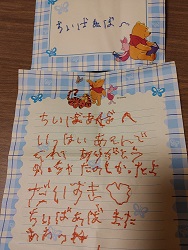 ちいばぁばへ
ちいばあばへ
いっぱいあそんで
くれて ありがとう
たのしかったよ
だいすき♡
ちいばあば また